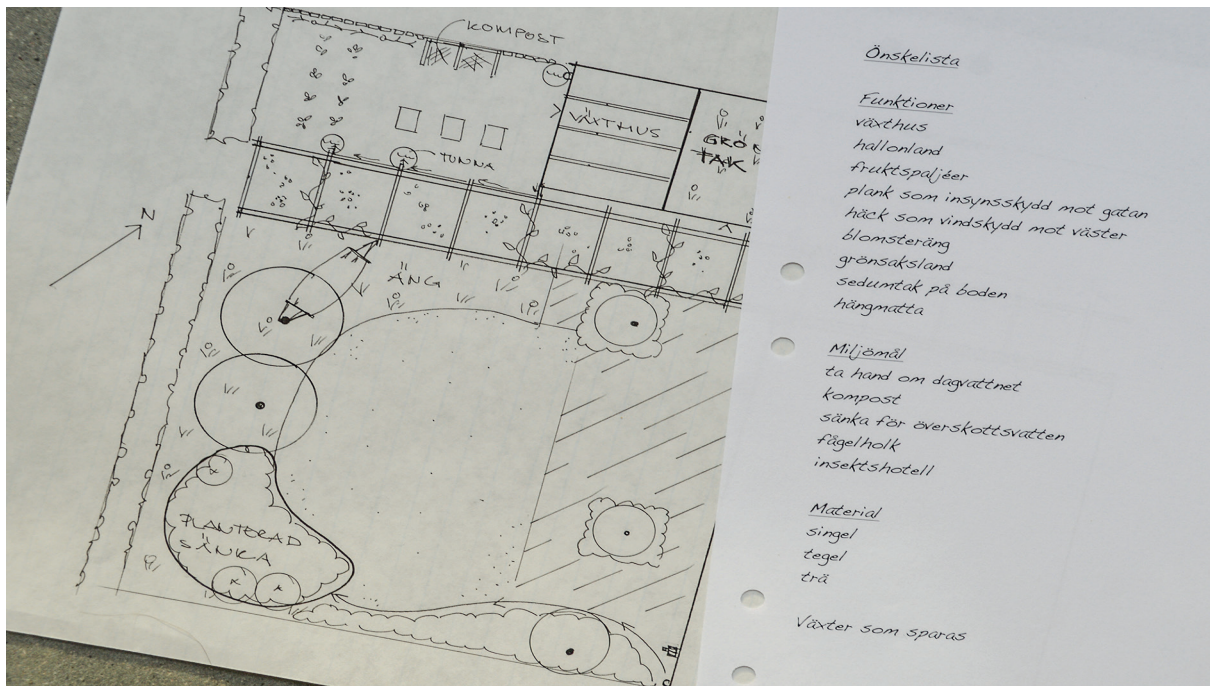 KOMPOST
VÄXTHUS
GRÖ
TAK
TUNNA
N
ÄNG
PLANTERAD
SÄNKA
Önskelista
Funktioner
växthus
hallonland
fruktspaljéer
plank som insynsskydd mot gatan
häck som vindskydd mot väster
blomsteräng
grönsaksland
sedumtak på boden
hängmatta
Miljömål
ta hand om dagvattnet
kompost
sänka för överskottsvatten
fågelholk
insektshotell
Material
singel
tegel
trä
Växter som sparas